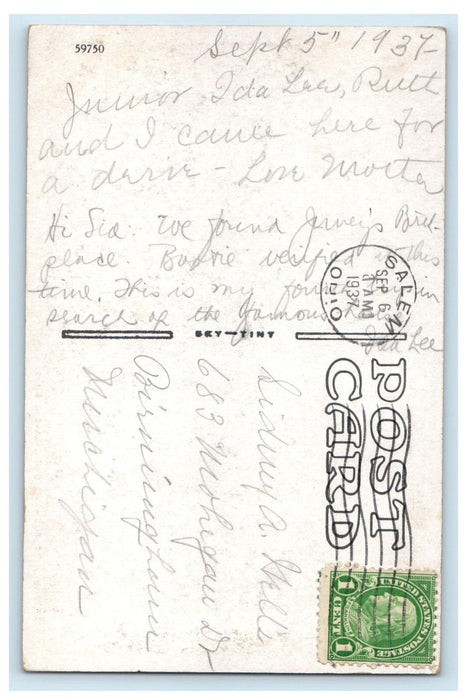 59750
Sept 5" 1937
Junior Ida Lee, Ruth
and I came here for
a drive - Love Mother
Hi Sid. We found
place. verified it this
time. This is my
search of the famous
Ida Lee
SKY-TINT
SALEM
SEP 6
AM
1937
OHIO
POST
CARD
Sidney A. Wells
683 Mohegan Dr
Birmingham
Michigan
UNITED STATES POSTAGE
1 CENT 1